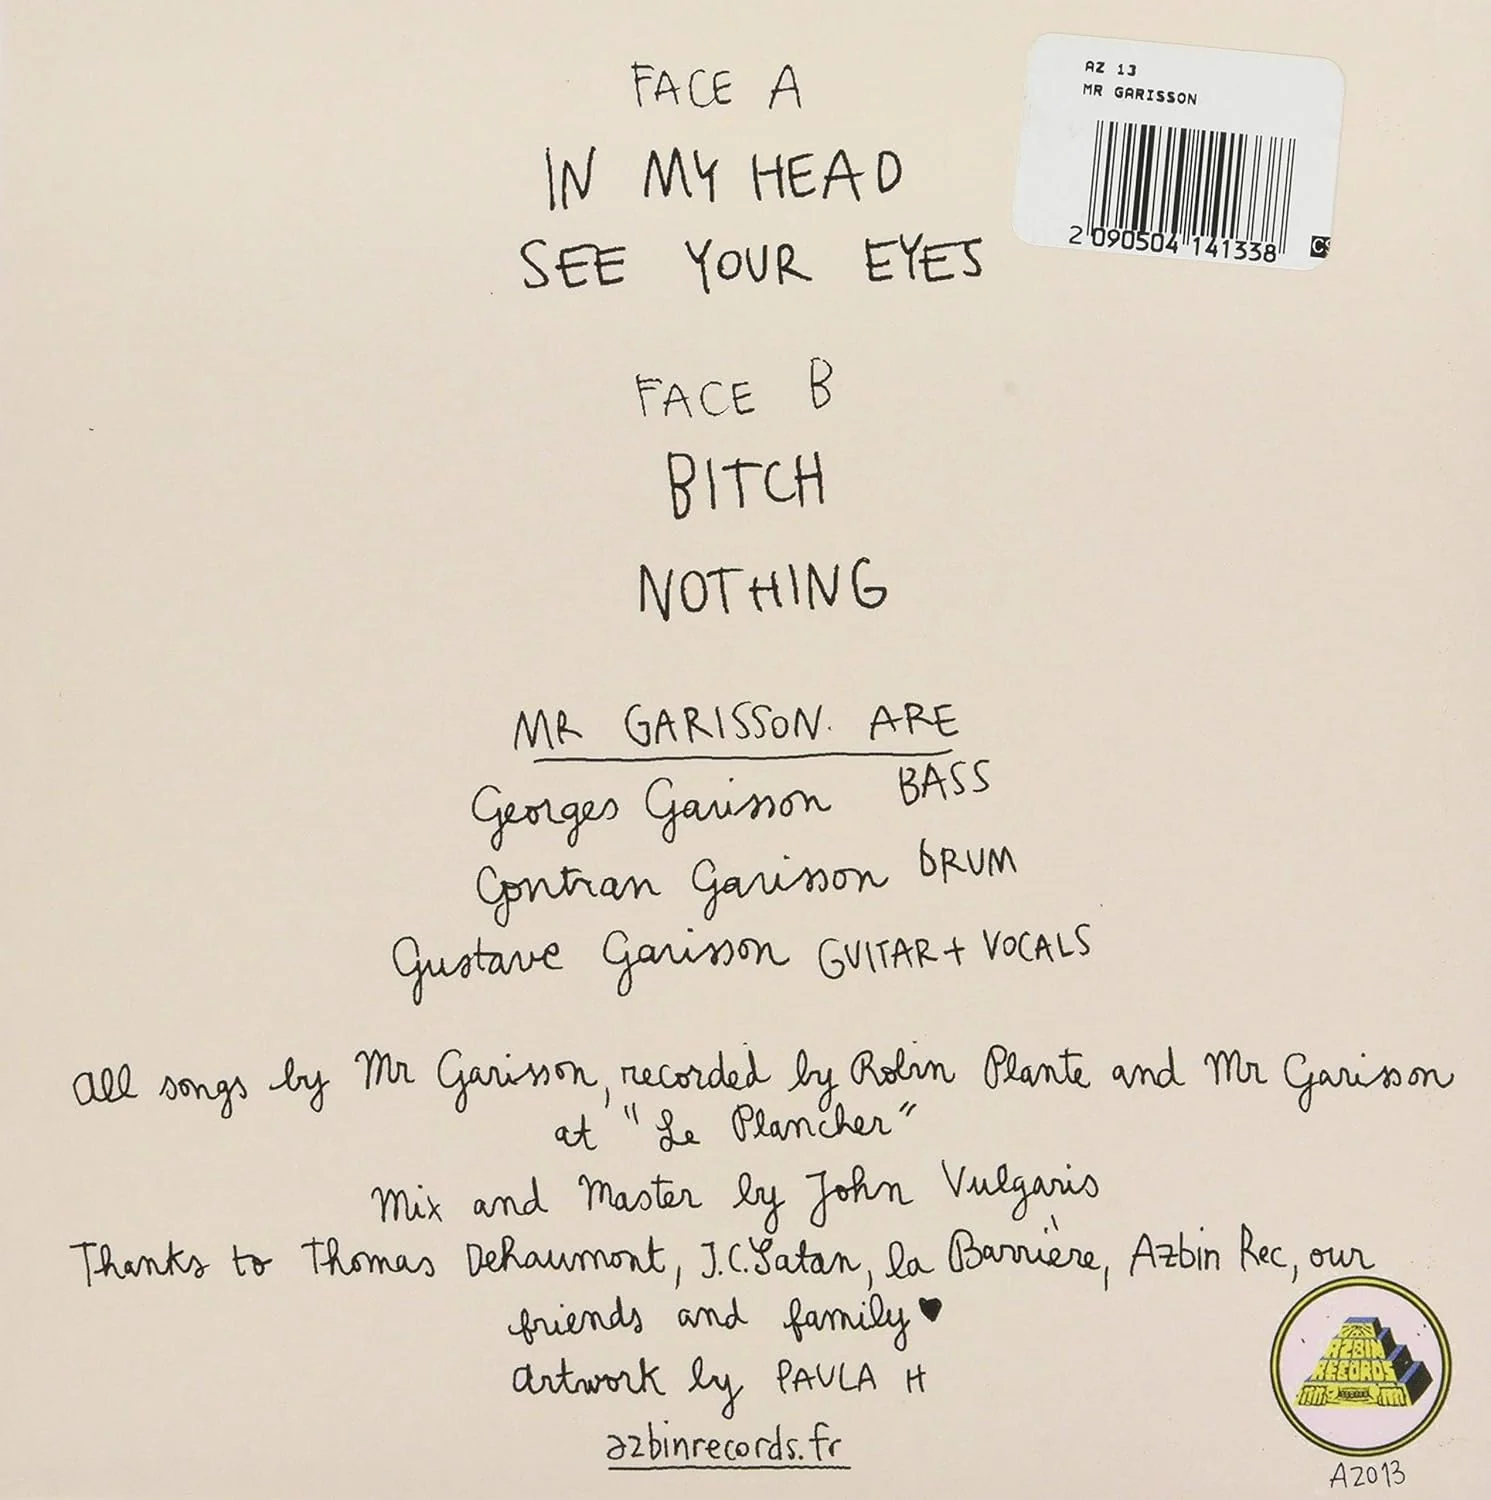 AZ 13
MR GARISSON
2 090504 141338
FACE A
IN MY HEAD
SEE YOUR EYES
FACE B
BITCH
NOTHING
MR GARISSON. ARE
Georges Garisson BASS
Gontran Garisson DRUM
Gustave Garisson GUITAR + VOCALS
All songs by Mr Garisson, recorded by Robin Plante and Mr Garisson
at "Le Plancher"
Mix and Master by John Vulgaris
Thanks to Thomas DeHaumont, J.C.Satan, la Barrière, Azbin Rec, our
friends and family ♥
Artwork by PAULA H
azbinrecords.fr
AZBIN
RECORDS
AZ013